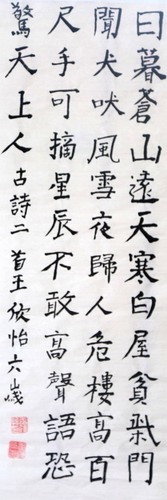 日暮蒼山遠天寒白屋貧柴門
聞犬吠風雪夜歸人危樓高百
尺手可摘星辰不敢高聲語恐
驚天上人 古詩二首王欣怡六歲